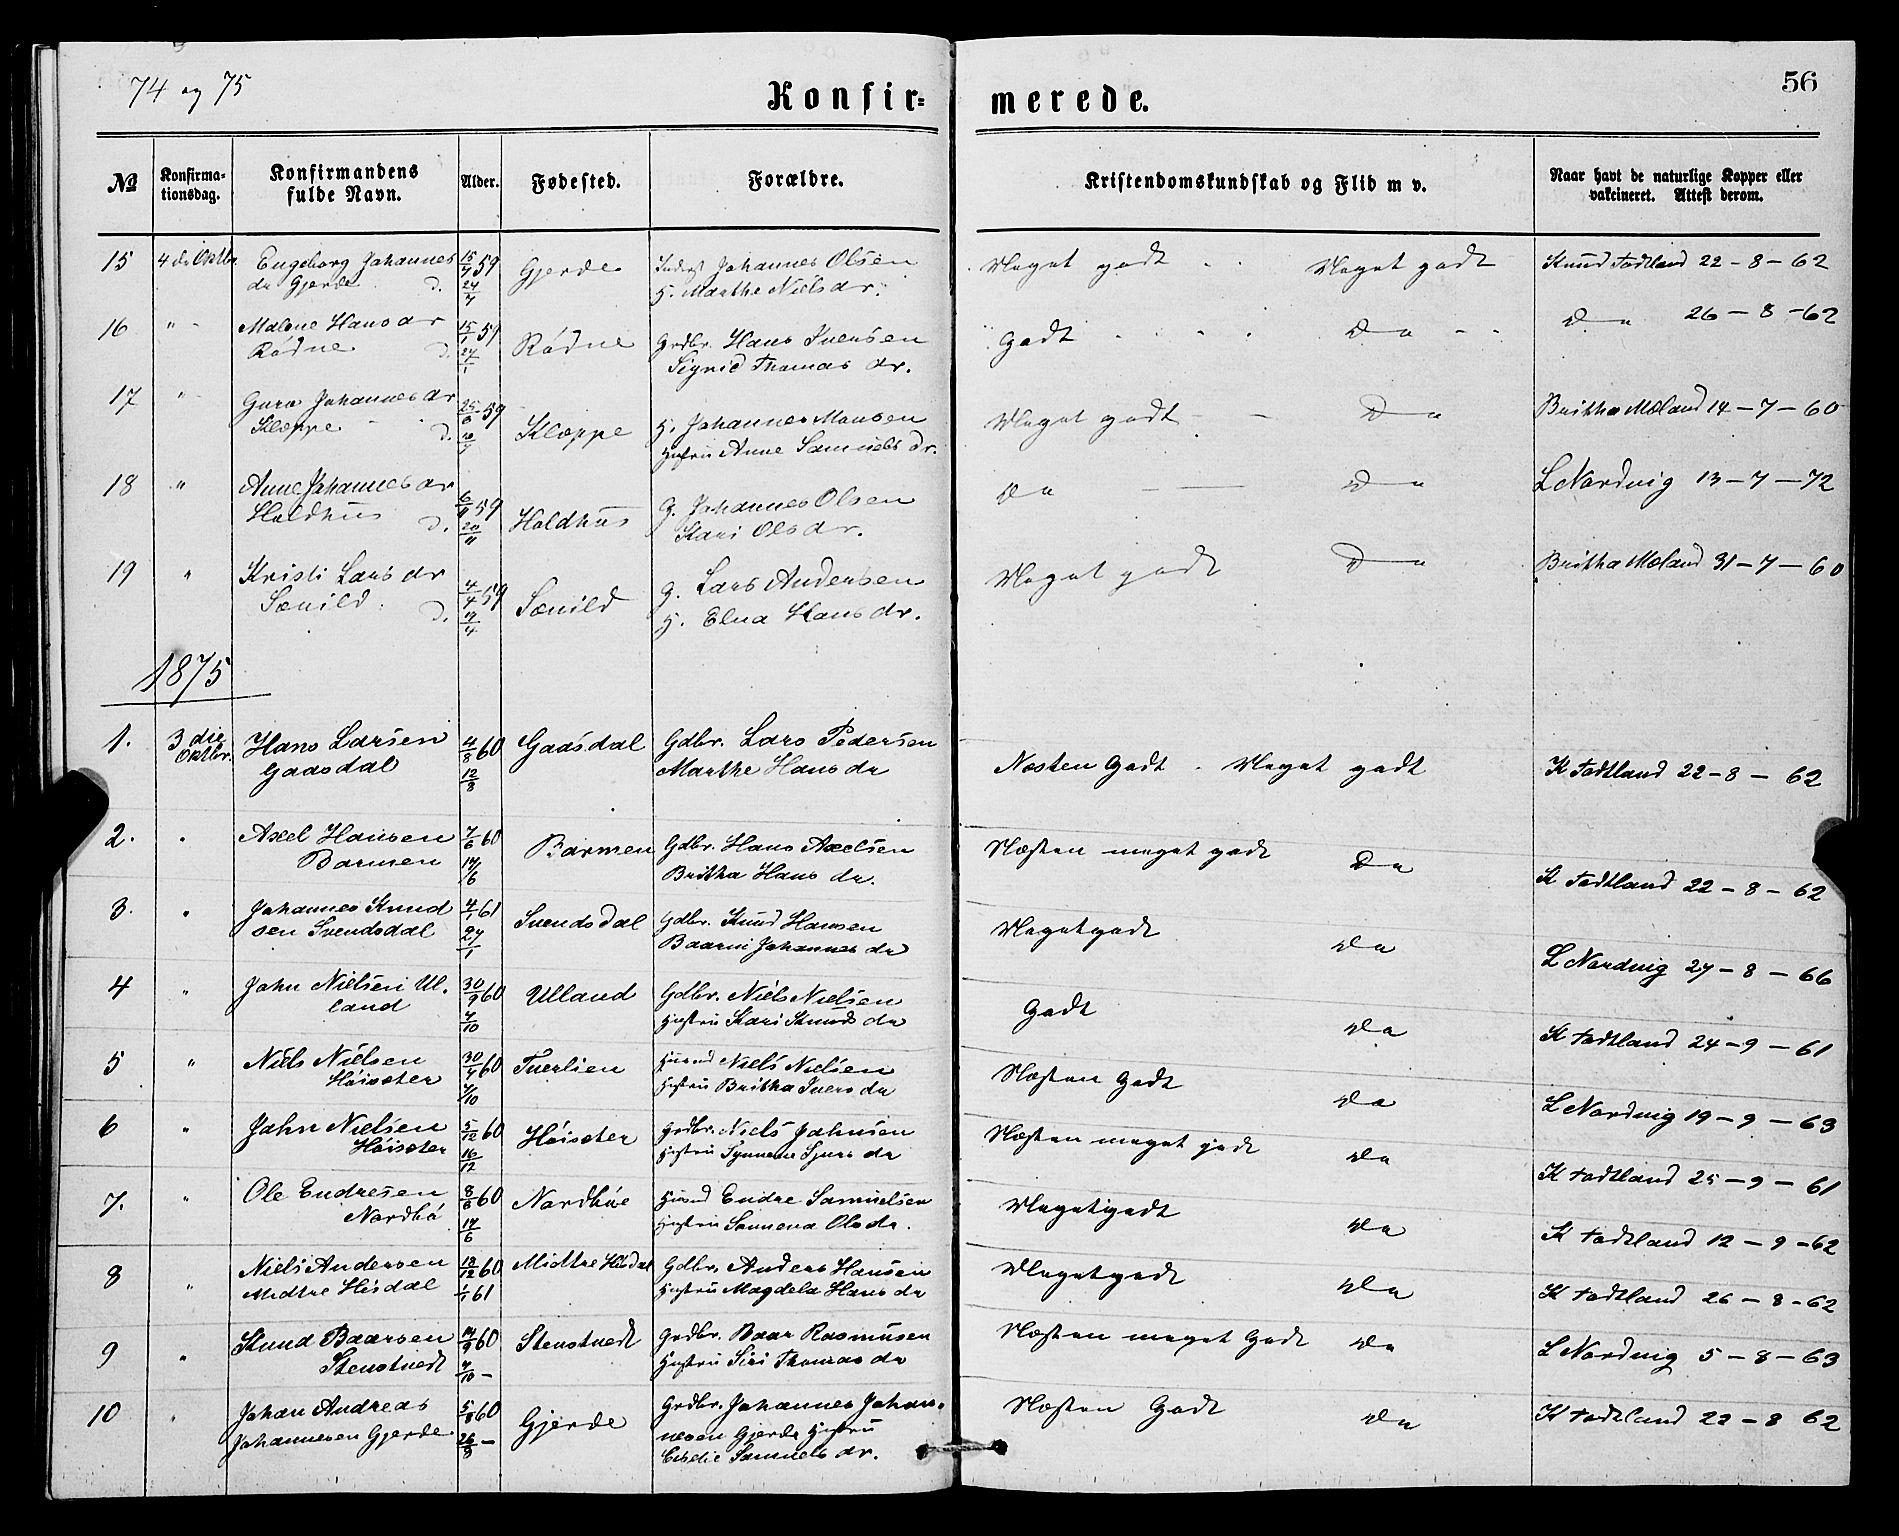 74 og 75
Konfir=
merede.
56
№
Konfirma-
tionsdag.
Konfirmandens
fulde Navn.
Alder.
Fødested.
Forældre.
Kristendomskundskab og Flid m v.
Naar havt de naturlige Kopper eller
vakcineret. Attest derom.
15 4 de Oktbr. Engeborg Johannes 15/7 59 Gjerde Johannes Olsen Meget godt Meget godt Knud Todtland 22-8-62
dr Gjerde d. 24/7 H. Marthe Niels dr.
16 " Malene Hans dr 15/1 59 Rødne Grdbr. Hans Iversen Godt Do Do 26-8-62
Rødne d. 27/1 Sigrid Thomas dr.
17 " Guro Johannes dr 59 Kleppe H. Johannes Monsen Meget godt Do Britha Mæland 14-7-60
Kleppe d. Hustru Anne Samuels dr.
18 " Anne Johannes dr 59 Holdhus G. Johannes Olsen Do Do L Nordvig 13-7-72
Holdhus d. 20/11 Kari Ols dr.
19 " Kristi Lars dr 4/4 59 Sævild G. Lars Andersen Meget godt Do Britha Mæland 31-7-60
Sævild d. H. Elna Hans dr.
1875
1. 3 die Oktbr. Hans Larsen 4/8 60 Gaasdal Gdbr. Lars Pedersen Næsten Godt Meget godt K Todtland 22-8-62
Gaasdal 12/8 Marthe Hans dr
2. " Axel Hansen 7/6 60 Barmen Gdbr. Hans Axelsen Næsten meget godt Do K Todtland 22-8-62
Barmen 17/6 Britha Hans dr.
3. " Johannes Knud 4/1 61 Svendsdal Gdbr. Knud Hansen Meget godt Do L Nordvig 27-8-66
sen Svendsdal 27/1 Johannes dr
4 " John Nielsen Ul. 30/9 60 Ulland Gdbr. Niels Nielsen Godt Do K Todtland 24-9-61
land 7/10 Hustru Kari Knuds dr
5 " Niels Nielsen 60 Tverlien Niels Nielsen Næsten Godt Do L Nordvig 19-9-63
Høisæter 7/10 Hustru Britha Ivers dr
6 " John Nielsen 5/12 60 Høisæter Grdbr. Niels Johnsen Næsten meget godt Do K Todtland 25-9-61
Høisæter 16/12 Hustru Synneve Sjurs dr
7. " Ole Endresen 8/6 60 Nordbøe Endre Samuelsen Meget godt Do K Todtland 12-9-62
Nordbø 17/6 Hustru Ols dr.
8 " Niels Andersen 12/12 60 Midtre Hisdal Gdbr. Anders Hansen Meget godt Do K Todtland 26-8-62
Midtre Hisdal 1/1 61 Hustru Magdela Hans dr
9 " Knud Baarsen 60 Stenstvedt Grdbr. Baar Rasmusen Næsten meget Godt Do L Nordvig 5-8-63
Stenstvedt 7/10 - Hustru Siri Thomas dr
10 " Johan Andreas 5/8 60 Gjerde Grdbr. Johannes Johan- Næsten Godt Do K Todtland 22-8 62
Johannesen Gjerde 26/8 - nesen Gjerde Hustru
Samuels dr.